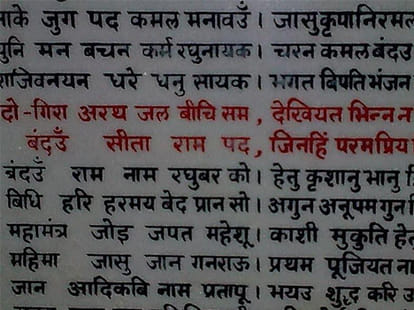 ाके जुग पद कमल मनावउँ। जासुकृपानिरमल
पुनि मन बचन कर्म रघुनायक। चरन कमल बंदउ
ाजिवनयन धरे धनु सायक। भगत बिपति भंजन
दो-गिरा अरथ जल बीचि सम, देखियत भिन्न न
बंदउँ सीता राम पद, जिनहिं परमप्रिय
बंदउँ राम नाम रघुबर को। हेतु कृशानु भानु
बिधि हरि हरमय बेद प्रान सो। अगुन अनूपम गुन
महामंत्र जोइ जपत महेशू। काशी मुकुति हेत
महिमा जासु जान गनराऊ। प्रथम पूजियत ना
जान आदिकबि नाम प्रतापू। भयउ शुद्ध करि उ